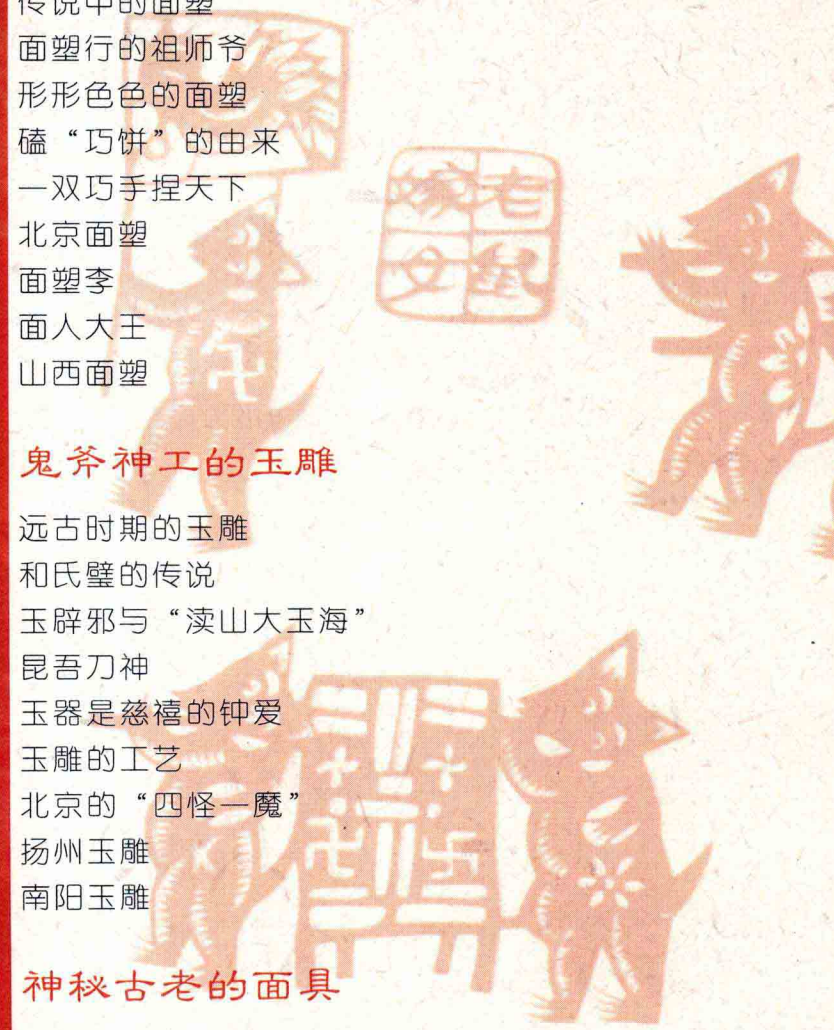 传说中的面塑
面塑行的祖师爷
形形色色的面塑
磕“巧饼”的由来
一双巧手捏天下
北京面塑
面塑李
面人大王
山西面塑
老鼠
嫁女
鬼斧神工的玉雕
远古时期的玉雕
和氏璧的传说
玉辟邪与“渎山大玉海”
昆吾刀神
玉器是慈禧的钟爱
玉雕的工艺
北京的“四怪一魔”
扬州玉雕
南阳玉雕
神秘古老的面具